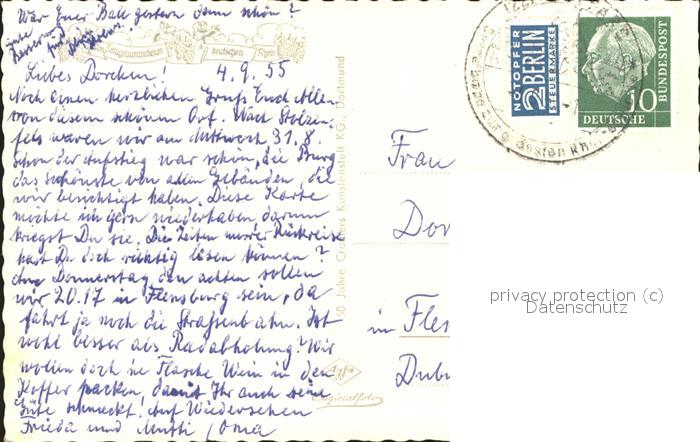 War Euer Ball gestern denn schön?
Liebes Dorchen! 4.9.55
Noch einen herzlichen Gruß Euch Allen
von diesem schönen Ort. Nach Stolzen-
fels waren wir am Mittwoch 31.8.
Schon der Aufstieg war schön, die Burg
das Schönste von allen Gebäuden, die
wir besichtigt haben. Diese Karte
möchte ich gern wiederhaben darum
kriegst Du sie. Die Zeiten unsrer Rückreise
hast Du doch richtig lesen können?
Am Donnerstag den achten sollen
wir 20.17 in Flensburg sein, da
fährt ja noch die Straßenbahn. Ist
wohl besser als Radabholung? Wir
wollen doch ne Flasche Wein in den
Koffer packen, damit Ihr auch seine
Güte schmeckt. Auf Wiedersehen
Frieda und Mutti, Oma
50 Jahre Cramers Kunstanstalt KG., Dortmund
Agfa
Originalfoto
NOTOPFER
2 BERLIN
STEUERMARKE
10
DEUTSCHE
BUNDESPOST
Frau
Dor
in Fles
Dub
privacy protection (c)
Datenschutz